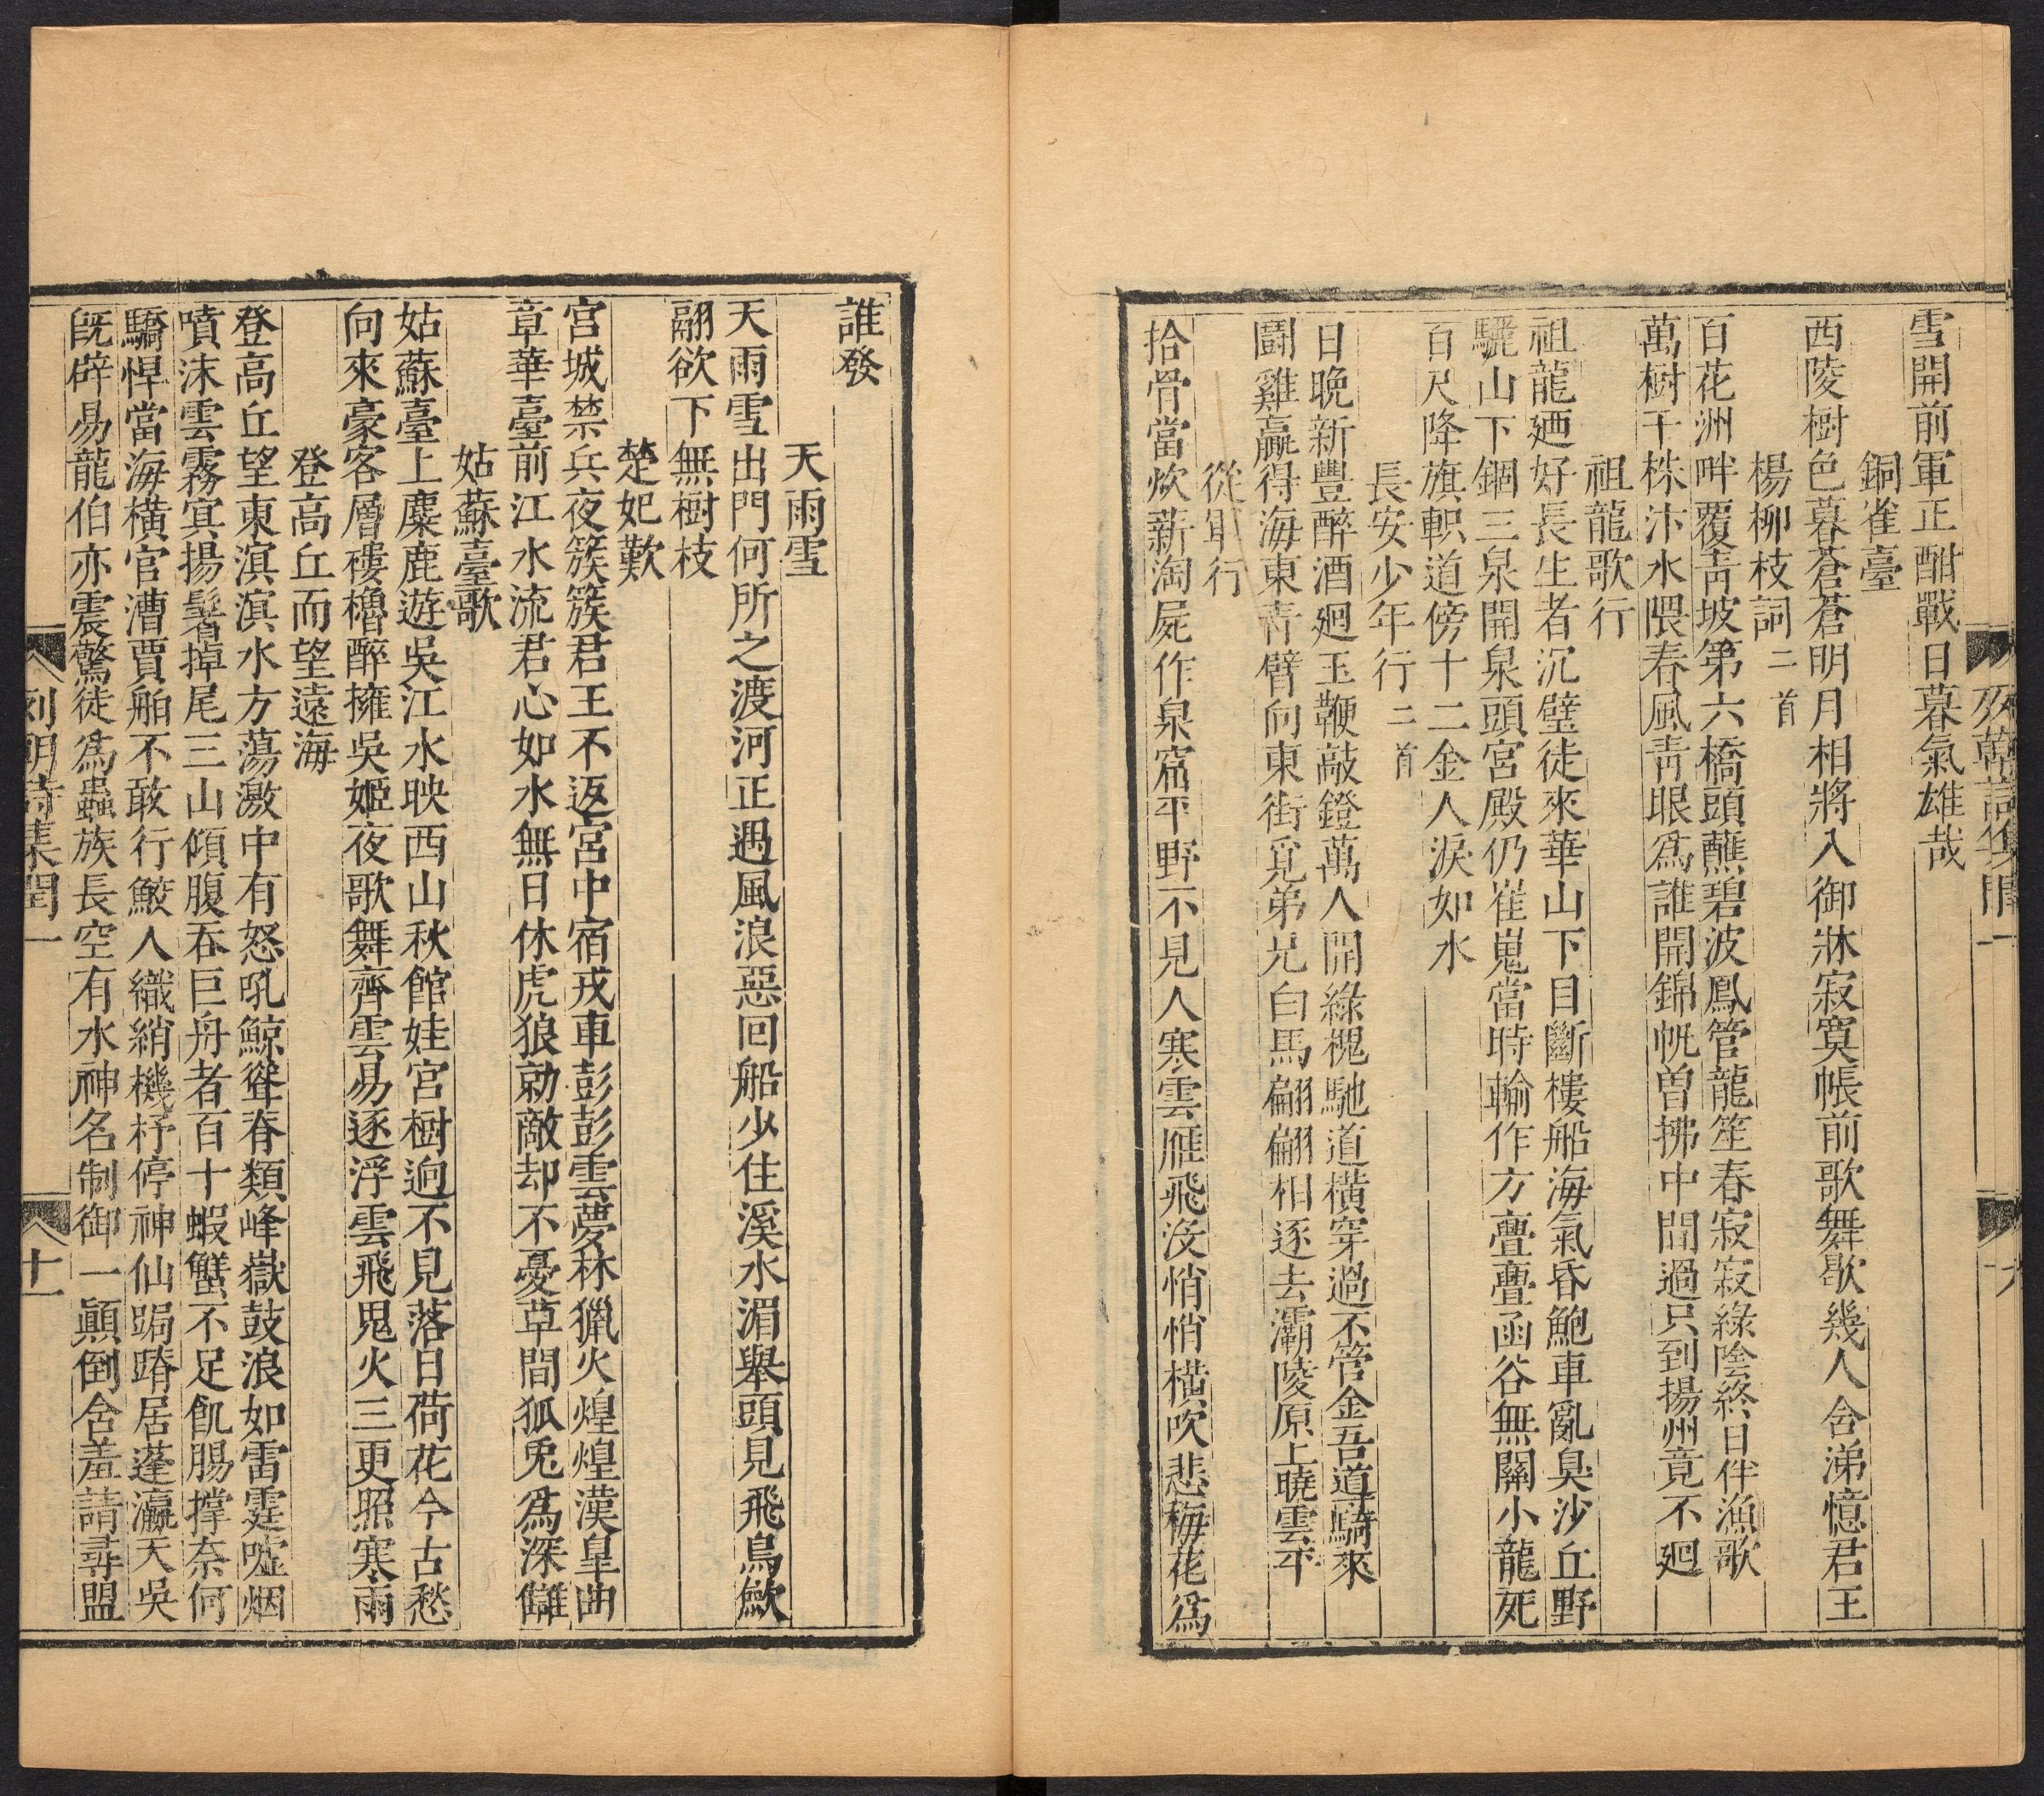 雪開前軍正酣戰日暮氣雄哉
銅雀臺
西陵樹色暮蒼蒼明月相將入御牀寂寞帳前歌舞歇幾人含涕憶君王
楊柳枝詞二首
百花洲畔覆青坡第六橋頭蘸碧波鳳管龍笙春寂寂綠陰終日伴漁歌
萬樹千株汴水隈春風青眼爲誰開錦帆曾拂中間過只到揚州竟不廻
祖龍歌行
祖龍廼好長生者沉璧徒來華山下目斷樓船海氣昏鮑車亂臭沙丘野
驪山下錮三泉開泉頭宮殿仍崔嵬當時輸作方亹亹函谷無關小龍死
百尺降旗軹道傍十二金人淚如水
長安少年行二首
日晚新豐醉酒廻玉鞭敲鐙萬人開綠槐馳道橫穿過不管金吾道騎來
鬬雞贏得海東靑臂向東街覓弟兄白馬翩翩相逐去灞陵原上曉雲平
從軍行
拾骨當炊薪淘屍作泉窟平野不見人寒雲雁飛没悄悄橫吹悲梅花爲
誰發
天雨雪
天雨雪出門何所之渡河正遇風浪惡回船少住溪水湄舉頭見飛鳥歘
翮欲下無樹枝
楚妃歎
宮城禁兵夜簇簇君王不返宮中宿戎車彭彭雲夢林獵火煌煌漢皐曲
章華臺前江水流君心如水無日休虎狼勍敵却不憂草間狐兎爲深讎
姑蘇臺歌
姑蘇臺上麋鹿遊吳江水映西山秋館娃宮樹迥不見落日荷花今古愁
向來豪客層樓櫓醉擁吳姬夜歌舞齊雲易逐浮雲飛鬼火三更照寒雨
登高丘而望遠海
登高丘望東溟溟水方蕩激中有怒吼鯨聳脊類峰嶽鼓浪如雷霆噓烟
噴沫雲霧冥揚鬐掉尾三山傾腹吞巨舟者百十蝦蟹不足飢腸撐奈何
驕悍當海橫官漕賈舶不敢行鮫人織綃機杼停神仙跼蹐居蓬瀛天吳
既辟易龍伯亦震驚徒爲蟲族長空有水神名制御一顚倒含羞請尋盟
列朝詩集閏一
十一